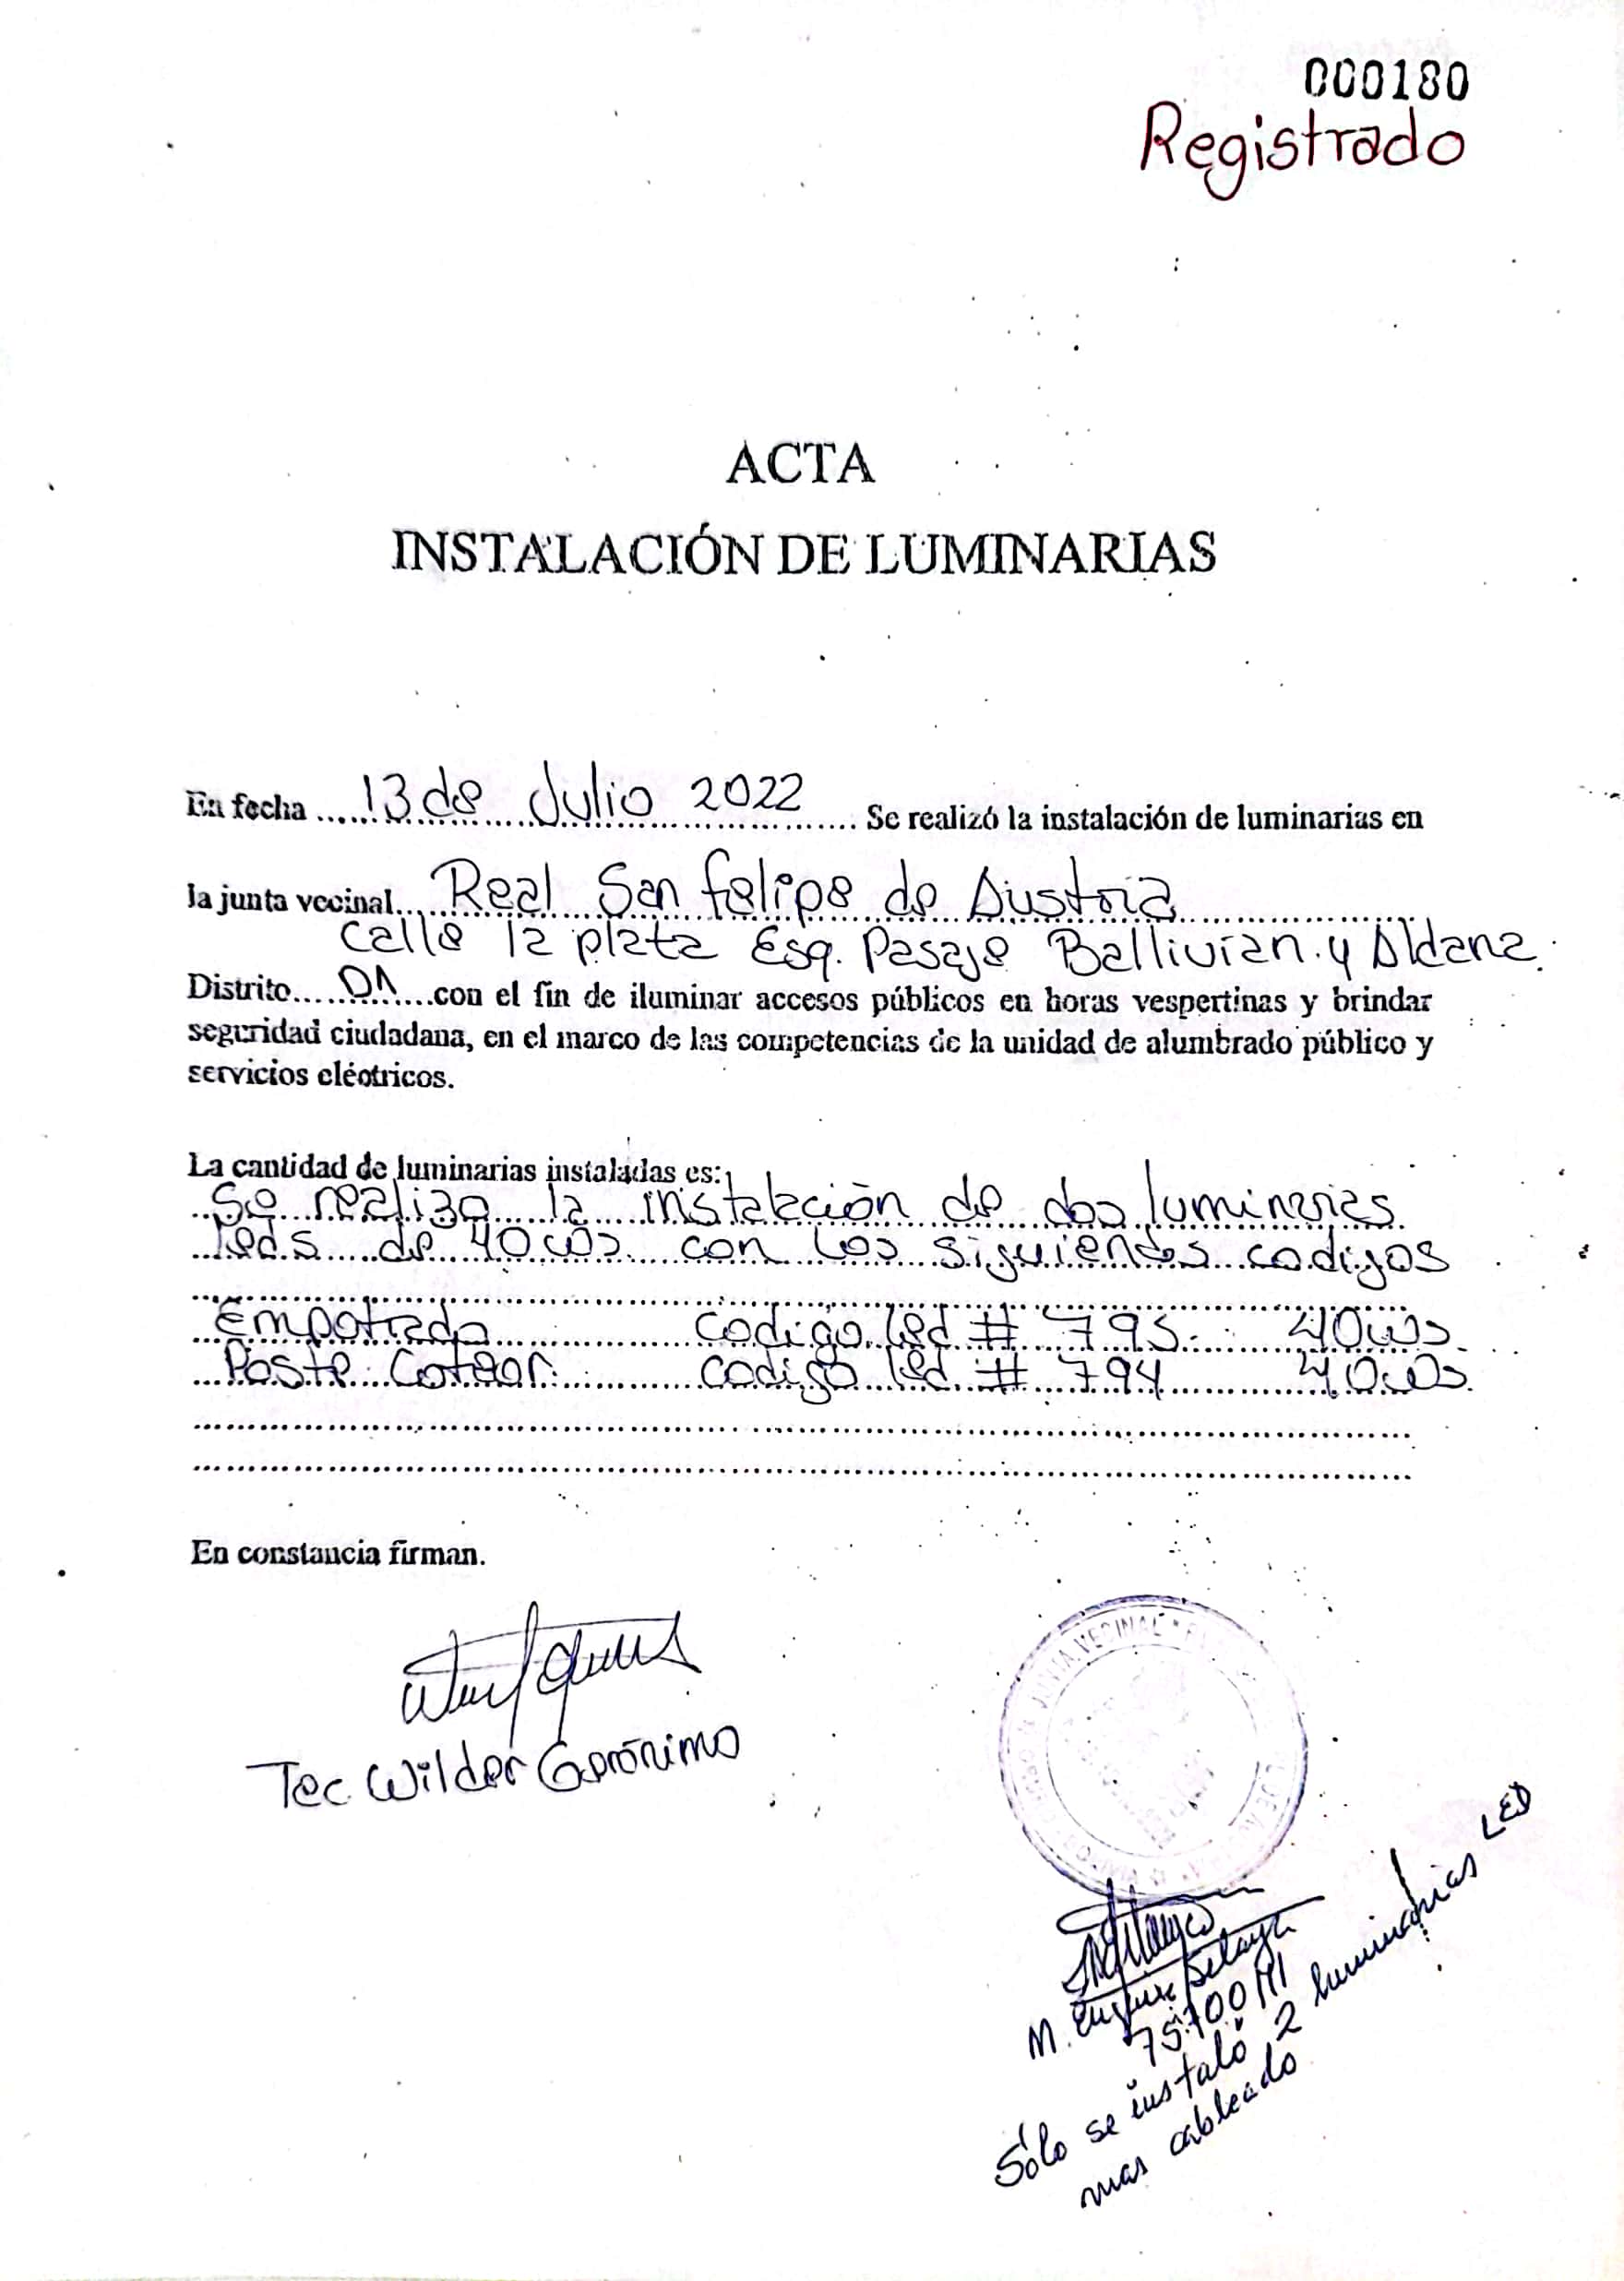 000180
Registrado
ACTA
INSTALACIÓN DE LUMINARIAS
En fecha 13 de Julio 2022 Se realizó la instalación de luminarias en
la junta vecinal Real San felipe de Austria
calle la plata Esq. Pasaje Ballivian y Aldana.
Distrito D1 con el fin de iluminar accesos públicos en horas vespertinas y brindar
seguridad ciudadana, en el marco de las competencias de la unidad de alumbrado público y
servicios eléctricos.
La cantidad de luminarias instaladas es:
Se realizo la instalación de dos luminarias
leds de 40ws con los siguientes codigos
Empotrado codigo led # 795 40ws
Poste Coteor codigo led # 794 40ws.
En constancia firman.
Tec Wilder Gerónimo
JUNTA VECINAL
M.
Sólo se instaló 2 luminarias LED
mas cableado